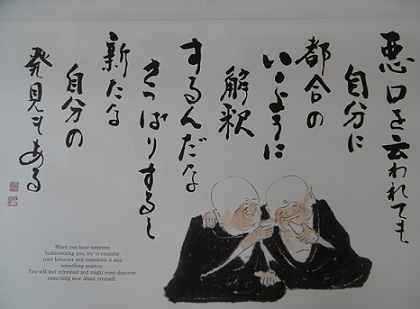 悪口を云われても
自分に
都合の
いいように
解釈
するんだな
さっぱりすると
新たな
自分の
発見もある
When you hear someone
badmouthing you, try to examine
your behavior and transform it into
something positive.
You will feel refreshed and might even discover
something new about yourself.